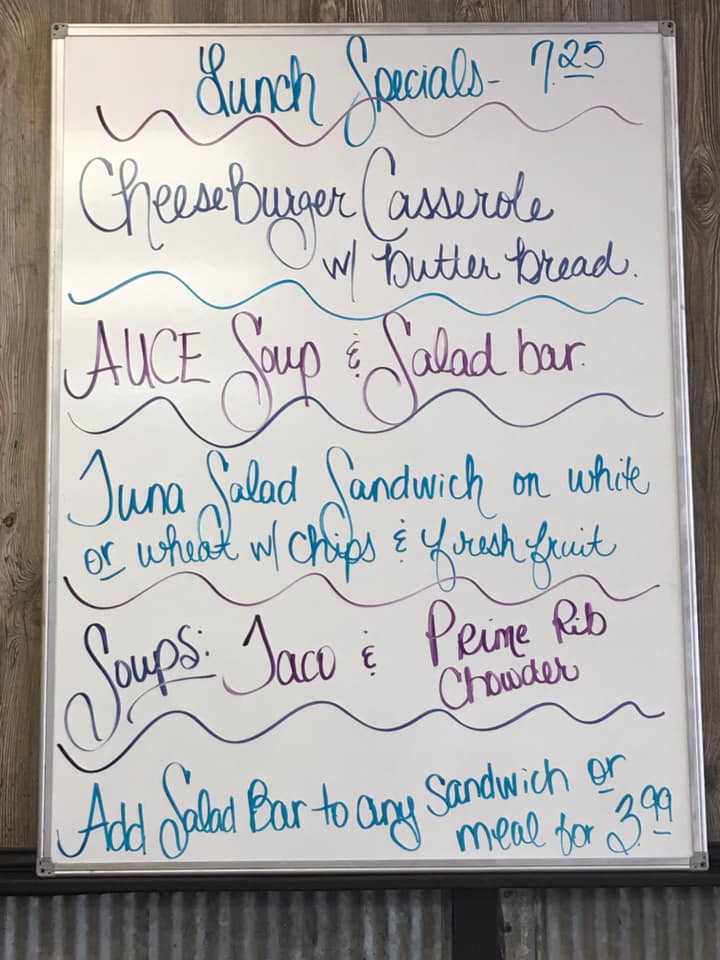 Lunch Specials- 7.25
CheeseBurger Casserole
w/ butter bread.
AUCE Soup & Salad bar.
Tuna Salad Sandwich on white
or wheat w/ chips & fresh fruit
Soups: Taco & Prime Rib
Chowder
Add Salad Bar to any Sandwich or
meal for 3.99